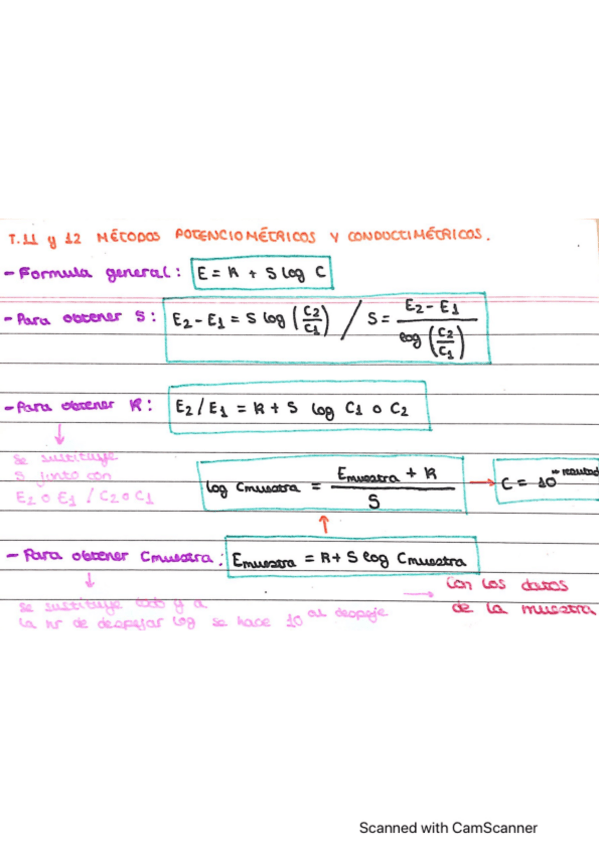 T.11 y 12 MÉTODOS POTENCIOMÉTRICOS Y CONDUCTIMÉTRICOS.
- Formula general: E = K + S log C
- Para obtener S: E2 - E1 = S log (C2/C1) / S = E2 - E1 / log (C2/C1)
- Para obtener K: E2/E1 = K + S log C1 o C2
↓
se sustituye
S junto con
E2 o E1 / C2 o C1
log Cmuestra = Emuestra + K / S → C = 10^-resultad
↑
- Para obtener Cmuestra: Emuestra = K + S log Cmuestra
↓
se sustituye todo y a
la hr de despejar log se hace 10 al despeje
→ con los datos
de la muestra
Scanned with CamScanner